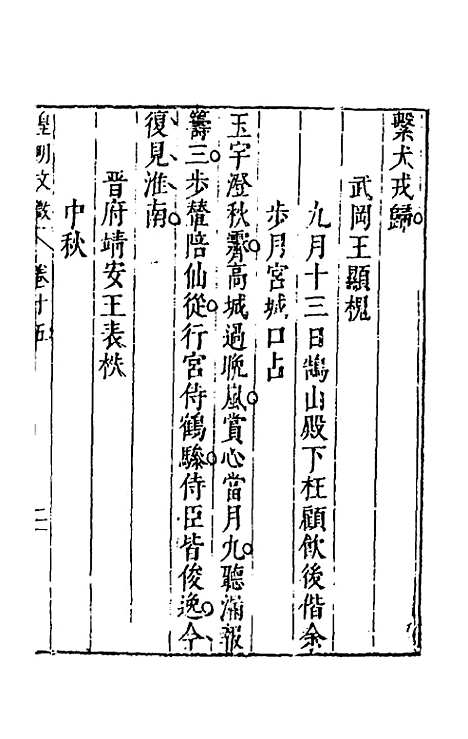 繫犬戎歸。
武岡王顯槐
九月十三日鵠山殿下枉顧飲後偕余
步月宮城口占
玉宇澄秋霽。高城過晚嵐。賞心當月九。聽漏報
籌三。步輦陪仙從。行宮侍鶴驂。侍臣皆俊逸。今
復見淮南。
晉府靖安王表
中秋
皇明文徵 卷十五 二